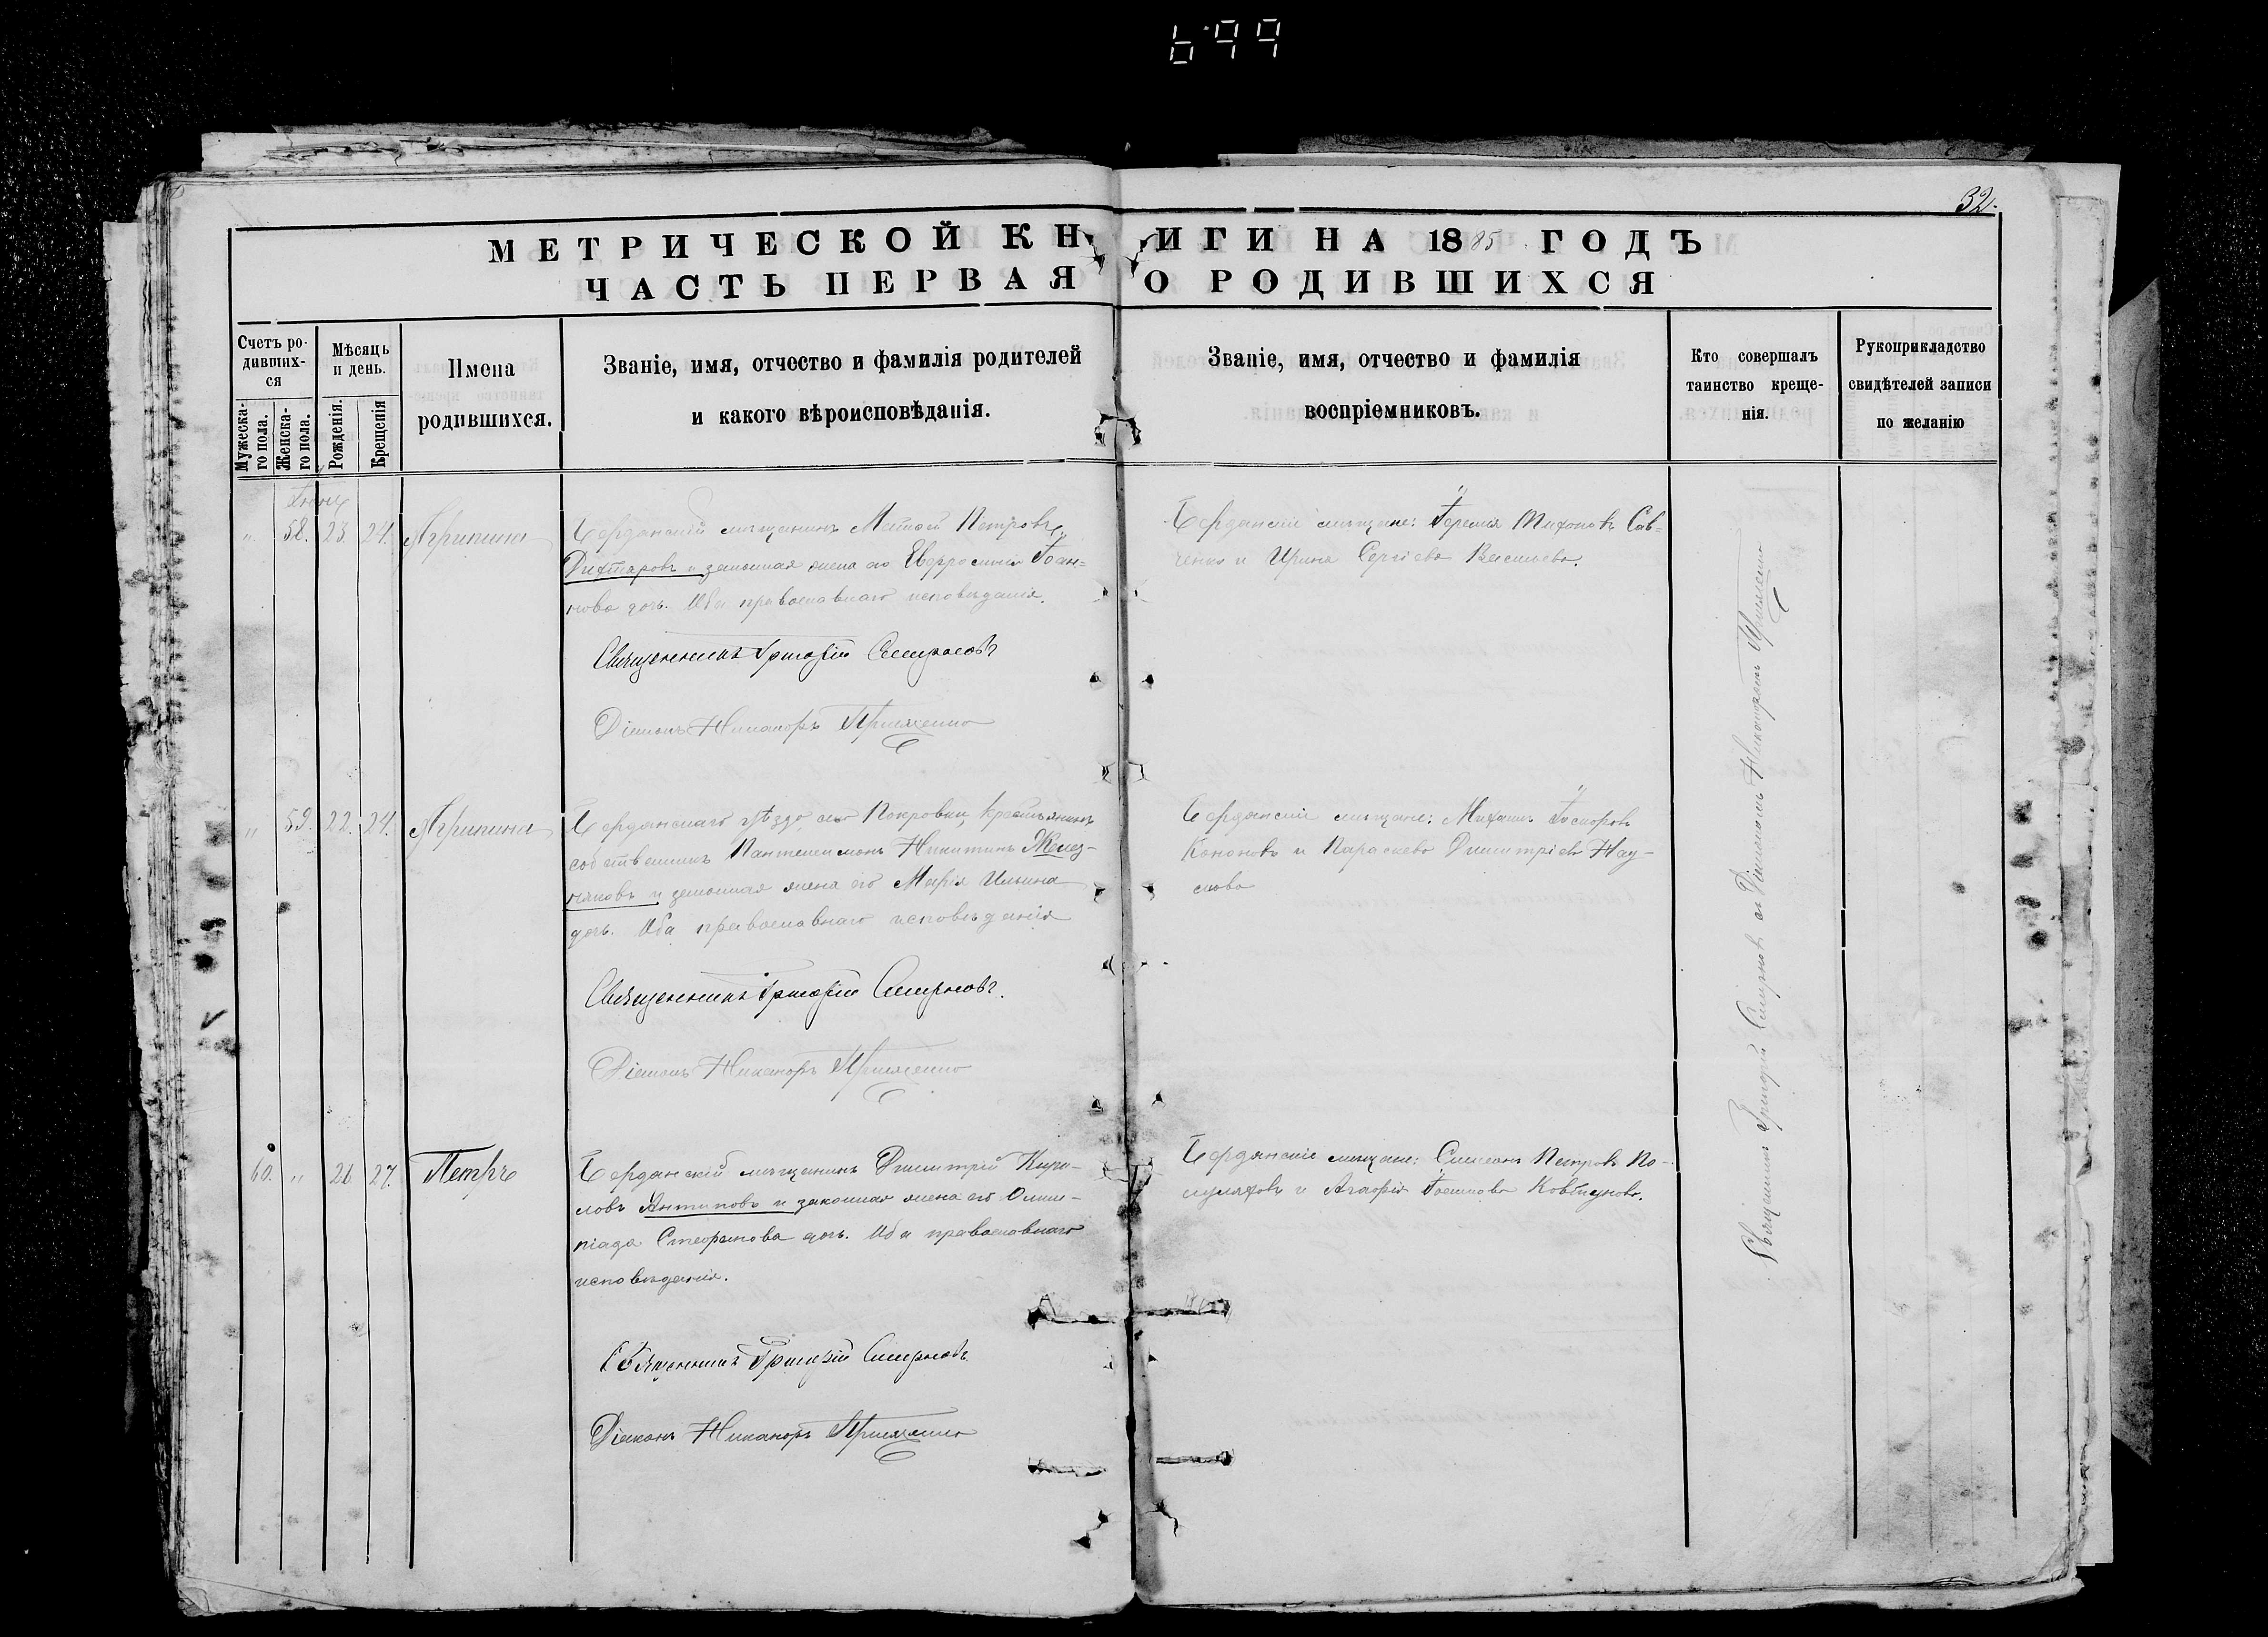 699
32.
МЕТРИЧЕСКОЙ КНИГИ НА 1885 ГОДЪ
ЧАСТЬ ПЕРВАЯ О РОДИВШИХСЯ
Счетъ ро-
дивших-
ся
Мужеска-
го пола.
Женска-
го пола.
Мѣсяцъ
и день.
Рожденія.
Крещенія
Имена
родившихся.
Званіе, имя, отчество и фамилія родителей
и какого вѣроисповѣданія.
Званіе, имя, отчество и фамилія
воспріемниковъ.
Кто совершалъ
таинство креще-
нія.
Рукоприкладство
свидѣтелей записи
по желанію
Іюнь
" 58. 23 24. Агрипина
Бердянскій мѣщанинъ Матѳей Петровъ
Дихтяровъ и законная жена его Евфросинія Іоан-
нова дочь. Оба православнаго исповѣданія.
Священникъ Григорій Смирновъ
Діаконъ Никаноръ
Бердянскіе мѣщане: Іеремія Тихоновъ Сав-
ченко и Ирина Сергіева Васильева.
" 59. 22. 24. Агрипина
Бердянскаго уѣзда села Покровки, крестьянинъ
собственникъ Пантелеимонъ Никитинъ Желез-
няковъ и законная жена его Марія Ильина
дочь. Оба православнаго исповѣданія
Священникъ Григорій Смирновъ.
Діаконъ Никаноръ
Бердянскіе мѣщане: Михаилъ
Кононовъ и Параскева Димитріева Нау-
мова
60. " 26. 27. Петръ
Бердянскій мѣщанинъ Димитрій Кири-
ловъ Антиповъ и законная жена его Олим-
піада Стефанова дочь. Оба православнаго
исповѣданія.
Священникъ Григорій Смирновъ
Діаконъ Никаноръ
Бердянскіе мѣщане: Симеонъ Петровъ По-
и Агафія
Священникъ Григорій Смирновъ съ Діакономъ Никаноромъ